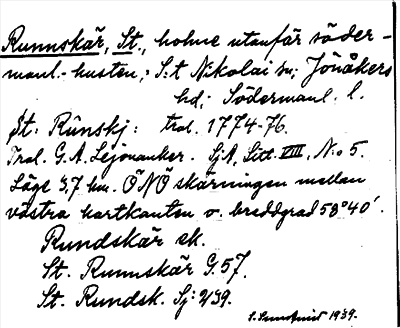 Runnskär, St., holme utanför söder-
manl.-kusten; S:t Nikolai sn; Jönåkers
hd; Södermanl. l.
St. Rûnskj: tral. 1774-76.
Tral. G.A. Lejonanker. SjA, Litt. VIII, N:o 5.
Läge 3,7 km. ÖNÖ skärningen mellan
västra kartkanten o. breddgrad 58°40'.
Rundskär ek.
St. Runnskär G.57.
St. Rundsk. Sj: 2/39.
1939.